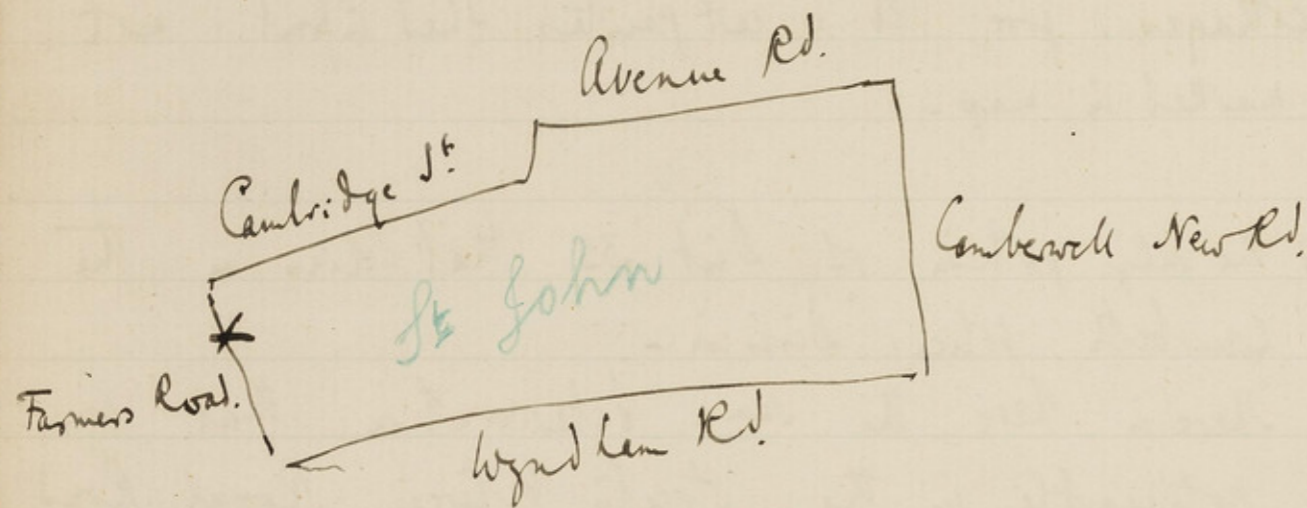 Avenue Rd.
Cambridge St.
Camberwell New Rd.
St John
Farmers Road.
Wyndham Rd.